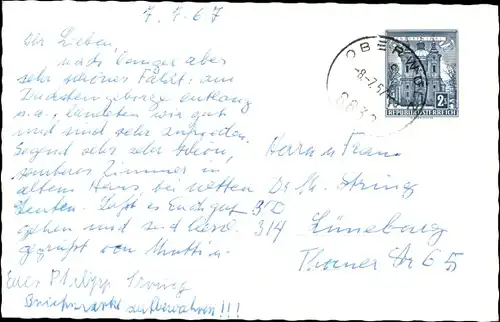 7. 7. 67
Ihr Lieben,
nach langer aber
sehr schöner Fahrt: am
entlang
u.s.w. landeten wir gut
und sind sehr zufrieden.
Gegend sehr sehr schön,
sauberes Zimmer in
altem Haus, bei netten
Leuten. Laßt es Euch gut
gehen und seid herzl.
gegrüßt von Mutti u.
Euer Philipp
Briefmarke aufbewahren!!!
OBERW
-8.-7.67
REPUBLIK ÖSTERREICH
2 S
Herrn u. Frau
Dr. M.
BD
314 Lüneburg
Thorner Str 65